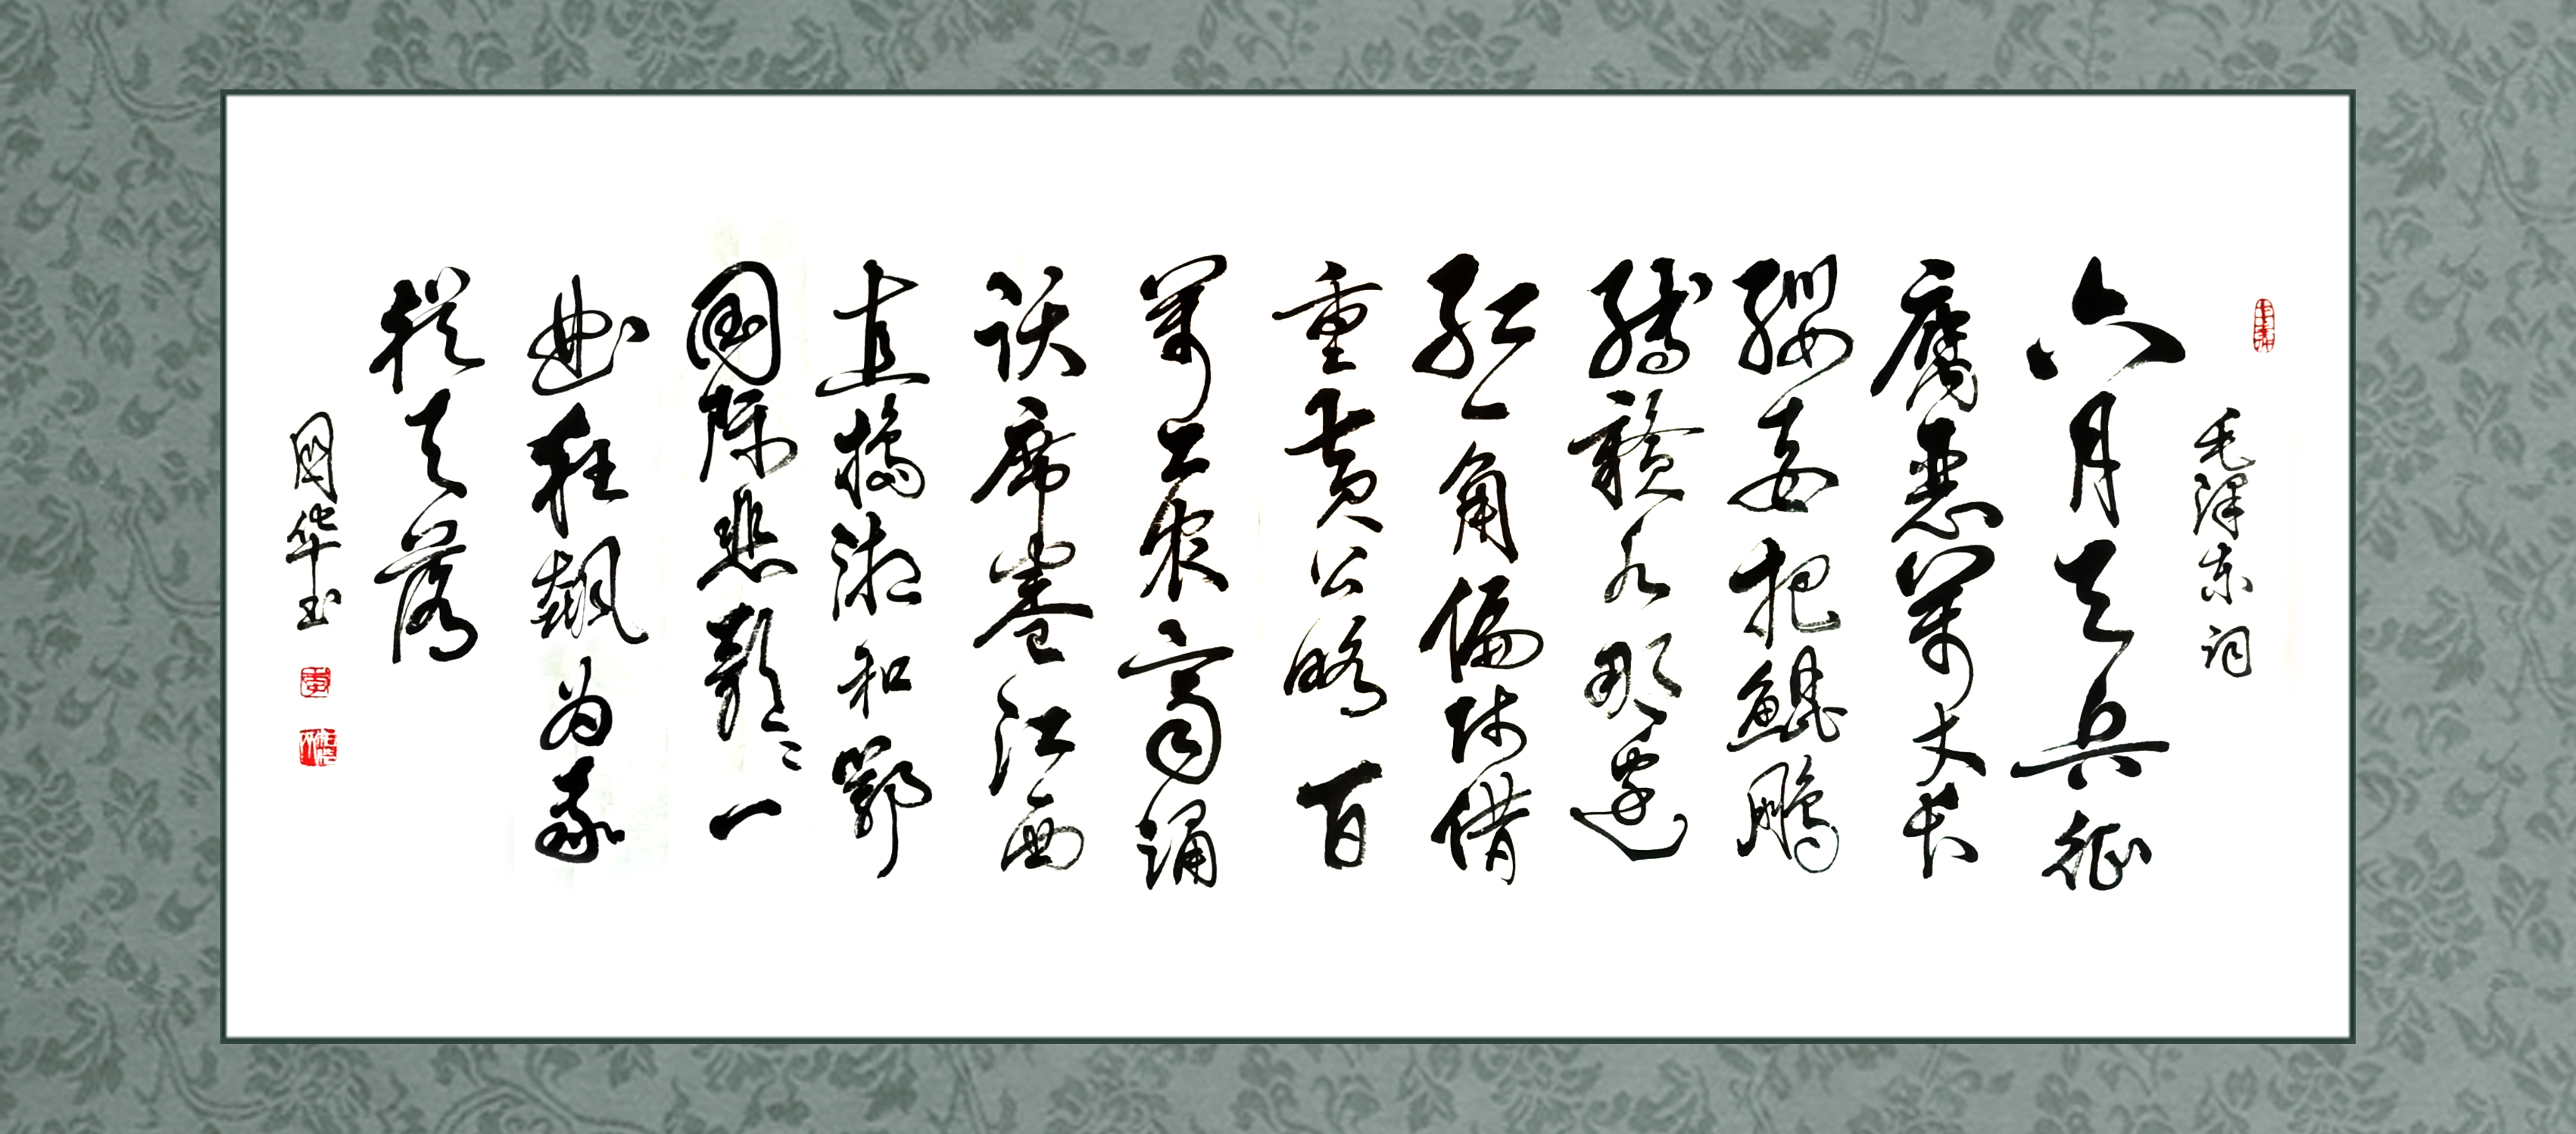 毛泽东词
六月天兵征
腐恶萬丈长
缨要把鲲鹏
缚赣水那边
红一角偏师借
重黄公略百
萬工农齊踊
跃席卷江西
直捣湘和鄂
國际悲歌〻一
曲狂飙为我
从天落